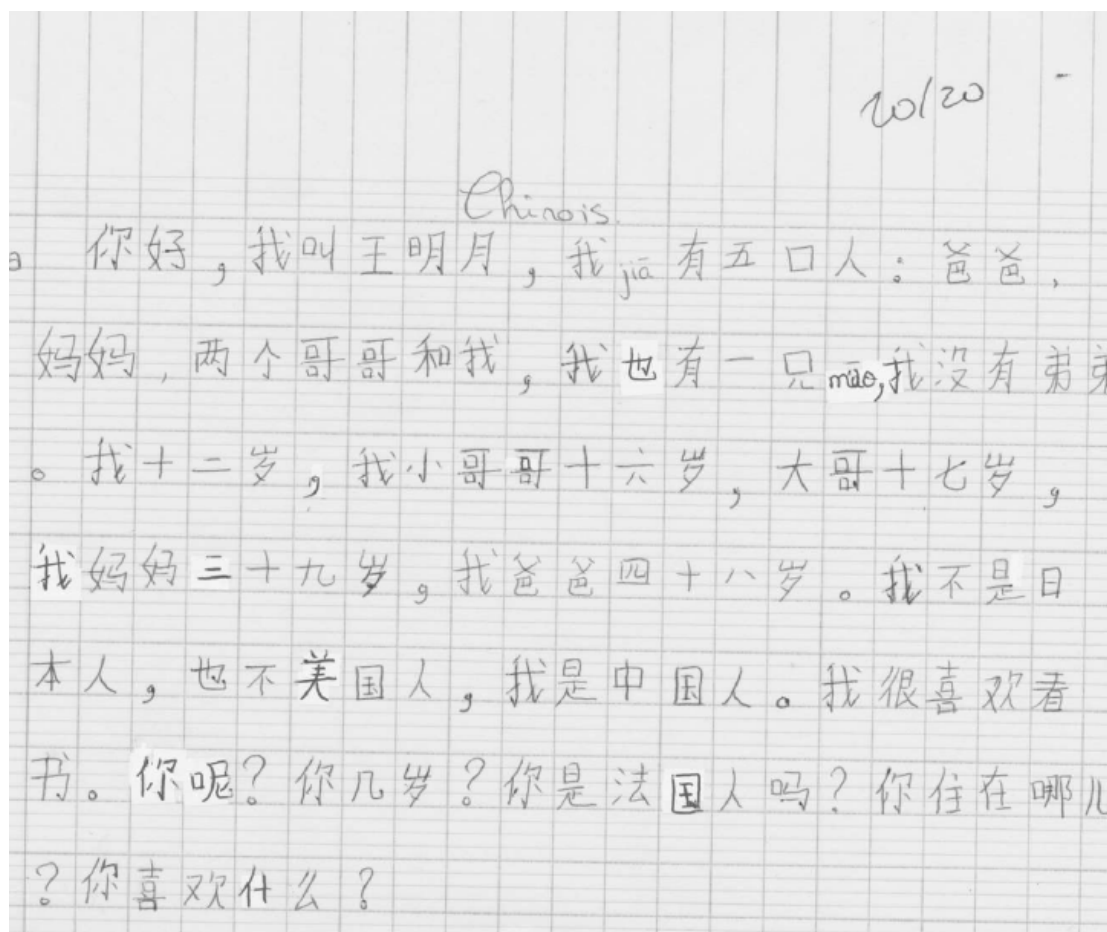 20/20
Chinois.
你好，我叫王明月，我jiā有五口人：爸爸，
妈妈，两个哥哥和我，我也有一只māo,我没有弟弟
。我十二岁，我小哥哥十六岁，大哥十七岁，
我妈妈三十九岁，我爸爸四十八岁。我不是日
本人，也不美国人，我是中国人。我很喜欢看
书。你呢？你几岁？你是法国人吗？你住在哪儿
？你喜欢什么？